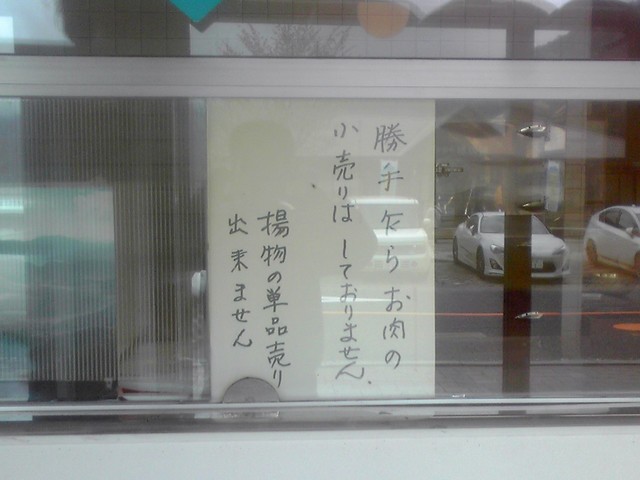 勝手乍らお肉の
小売りはしておりません.
揚物の単品売り
出来ません